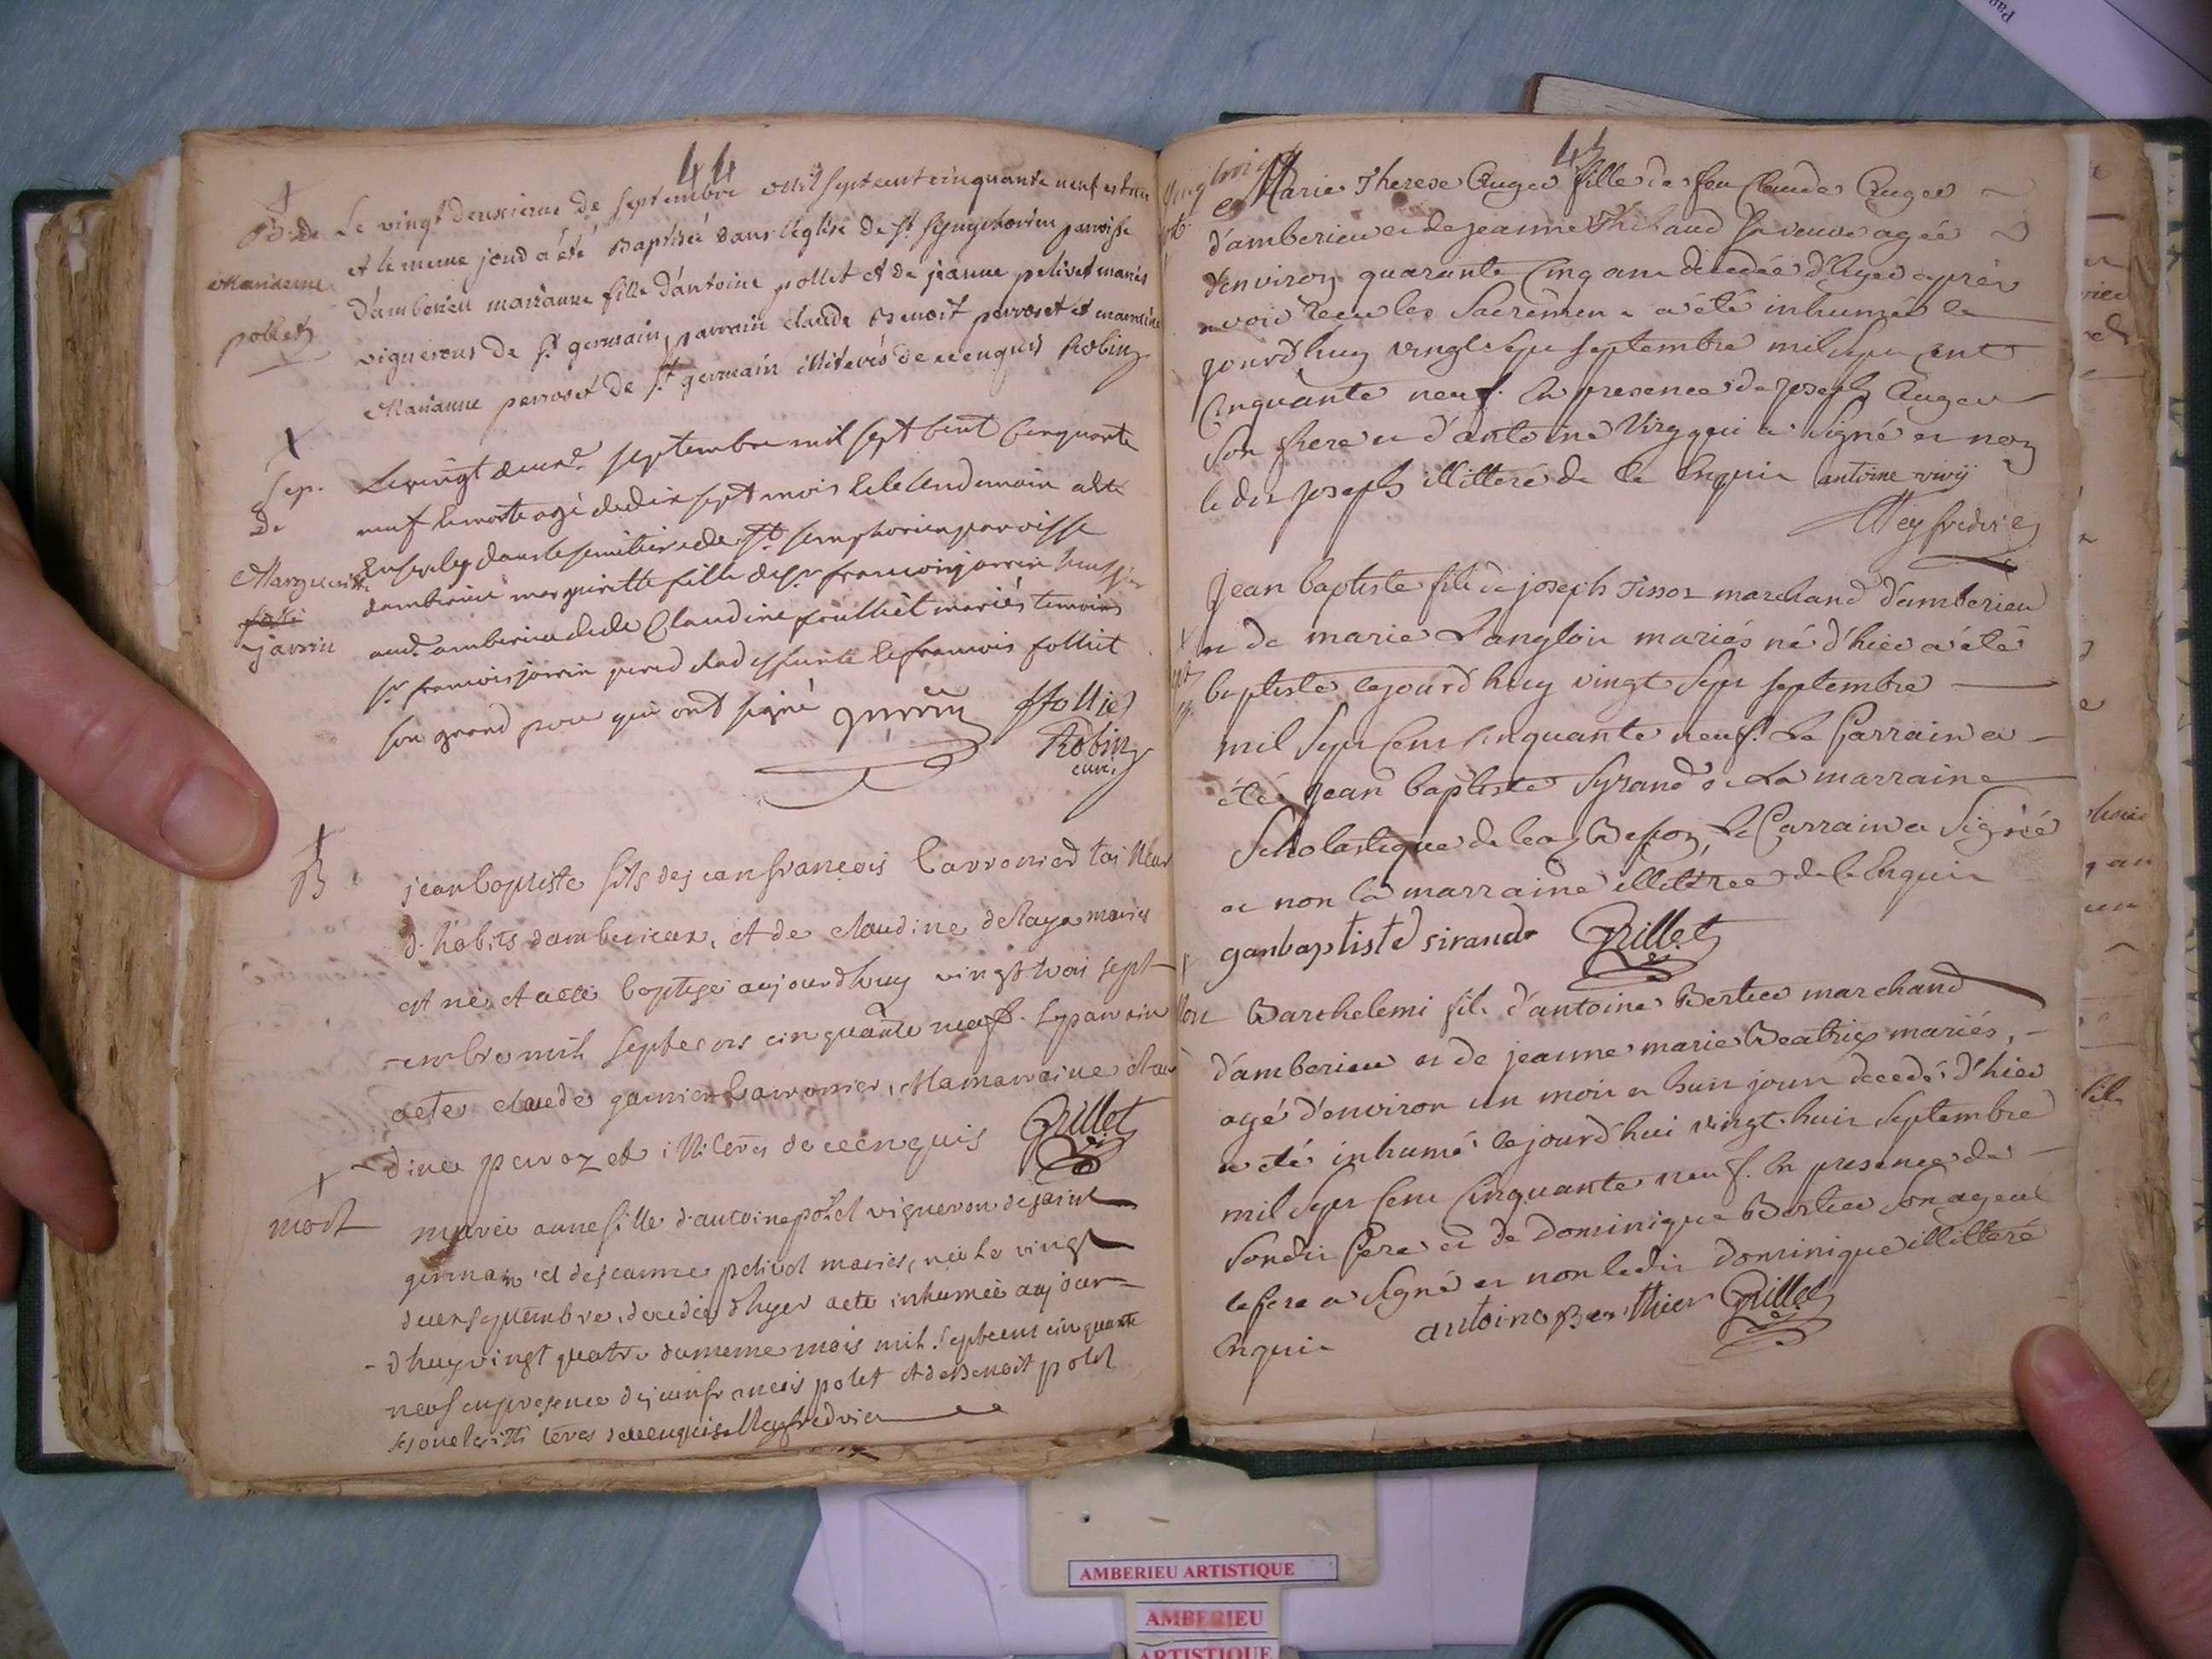 44
B. de
Marianne
pollet
Le vingt deuxieme de septembre mil sept cent cinquante neuf est née
et le meme jour a été Baptisée dans l'église de St Symphorien paroisse
d'amberieu marianne fille d'antoine pollet et de jeanne pelivet mariés
vignerons de St germain, parrain claude Benoit perroset et marraine
Marianne perroset de St germain illiterés de ce enquis Robin
Sep.
De
Marguerite
jarrin
Le vingt deux.e septembre mil sept cent cinquante
neuf et morte agé de dix sept mois et le lendemain a été
ensevely dans le semitiere de St semphorien paroisse
damberieu marguerite fille de sr francois jarrin huissier
aud. amberieu et de Claudine folliet mariés temoins
sr francois jarrin pere de lad. et francois folliet
son grand pere qui ont signé jarrin ffolliet
Robin
curé
B
jean baptiste fils de jean francois Carronier tailleur
d'habits damberieux, et de claudine delaya mariés
est né et a été baptisé aujourdhuy vingt trois sept-
-embre mil sept cens cinquante neuf. Le parrain
a été claude garnier Carronier, et la marraine clau
dine perrozet illiterés de ce enquis Grillet
mort
marie anne fille d'antoine polet vigneron de saint
germain et de jeanne pelivet mariés, née le vingt
deux septembre, decedée d'hyer a été inhumée aujour-
-dhuy vingt quatre du meme mois mil sept cent cinquante
neuf en presence de jean francois polet et de Benoit polet
ses oncles illiterés de ce enquis Meyfredrier
45
Marie Therese Auger fille de feu Claude Auger
d'amberieu et de jeanne Thibaud sa veuve agée
d'environ quarante cinq ans decedée d'hyer après
avoir recu les Sacremens a été inhumée ce
jourd'huy vingt sept septembre mil sept cent
Cinquante neuf. En presence de joseph Auger
son frere et d'antoine Viry qui a signé et non
le dit joseph illitteré de ce enquis antoine viry
Meyfredrier
Jean baptiste fils de joseph Tissot marchand d'amberieu
et de marie Langlois mariés né d'hier a été
baptisté cejourd'huy vingt sept septembre
mil sept cent cinquante neuf. Le Parrain a
été jean baptiste Syrand et La marraine
Scholastique de la Le Parrain a signé
et non la marraine illitérée de ce enquis
ganbaptiste sirand Grillet
Barthelemi fils d'antoine Bertier marchand
d'amberieu et de jeanne marie Beatrix mariés,
agé d'environ un mois et huit jours decedé d'hier
a été inhumé cejourd'hui vingt huit septembre
mil sept cent cinquante neuf. En presence de
sondit Pere et de Dominique Bertier son ayeul
le pere a signé et non ledit Dominique illitteré
enquis antoine Berthier Grillet
AMBERIEU ARTISTIQUE
AMBERIEU
ARTISTIQUE